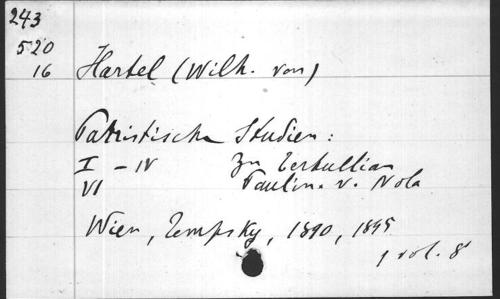 243
520
16 Hartel (Wilh. von)
Patristische Studien:
I - IV Zu Tertullian
VI Paulin. v. Nola
Wien, Tempsky, 1890, 1895
1 vol. 8°